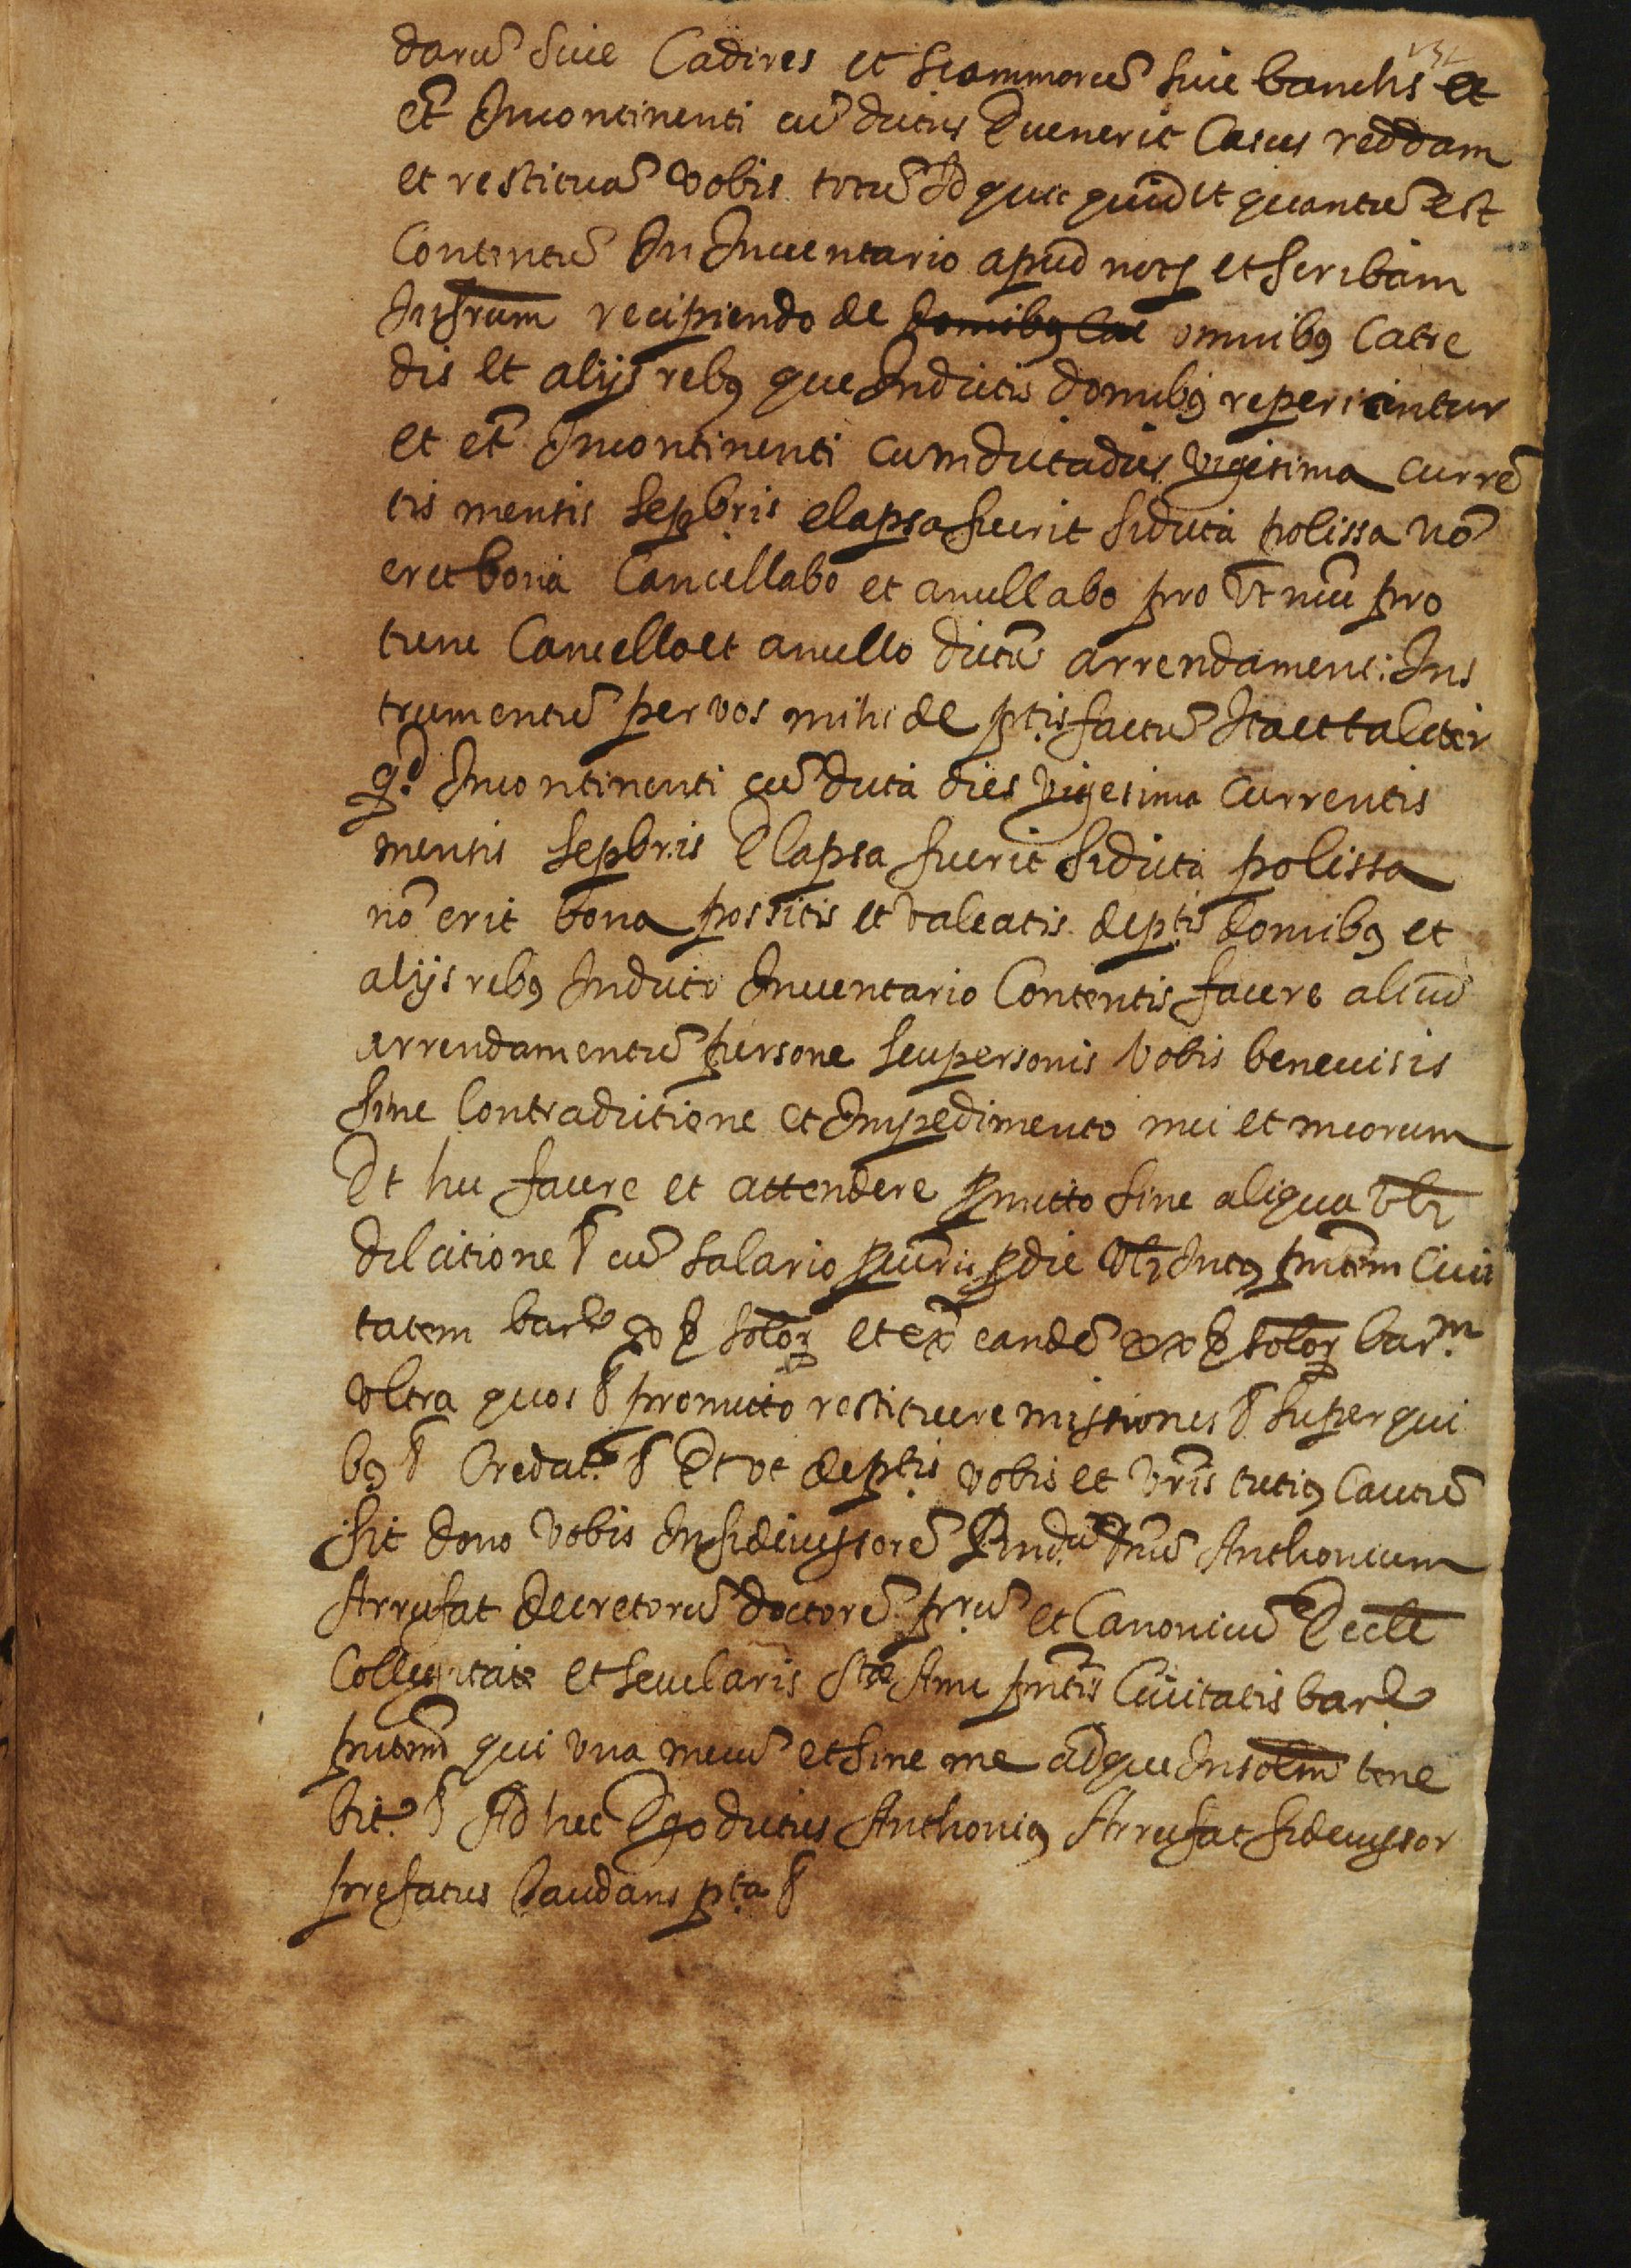 darũ siue Cadires et scammorũ siue banchs et
et̃ Incontinenti cũ dictus Euenerit Casus reddam
et restituã vobis totũ Id quic quid et quantũ est
Contentũ In Inuentario apud notm et scribam
Infrum recipiendo de domibus cat omnibus Catre
dis et alijs rebus que Indictis domibus reperientur
et et̃ Incontinenti cum dicta dies vigesima currẽ
tis mensis Sepbris elapsa fuerit si dicta polissa nõ
erit bona Cancellabo et anullabo pro vt nũc pro
tunc Cancello et anullo dictũ arrendament: Ins
trumentũ per vos mihi de ptis factũ Ita et taliter
qd Incontinenti cũ dicta dies vigesima Currentis
mensis Sepbris Elapsa fuerit si dicta polissa
nõ erit bona possitis et valeatis de ptis domibus et
alijs rebus In dicto Inuentario Contentis facere aliud
arrendamentũ persone seu personis Vobis beneuisis
sine Contradictione et Impedimento mei et meorum
Et hec facere et attendere pmitto sine aliqua vlr
dilatione § cũ salario pcuris pdie vlr Intus pntem Ciui
tatem barne x § solor et ex̃ eandẽ xx § solor barm
vltra quos § promitto restituere missiones § super qui
bus § Credatr § Et vt de ptis vobis et vr̃is tutius Cautũ
sit dono vobis In fideiussorẽ Rndũ Dnũ Anthonium
Arrufat decretorũ doctorẽ prũ et Canonicũ Eccle
Collegiate et secularis Ste Ane pntis Ciuitatis barne
pntem qui vna mecũ et sine me ad que Insolm tene
bitr § Ad hec Ego dictus Anthonius Arrufat fideiussor
prefatus laudans pta §